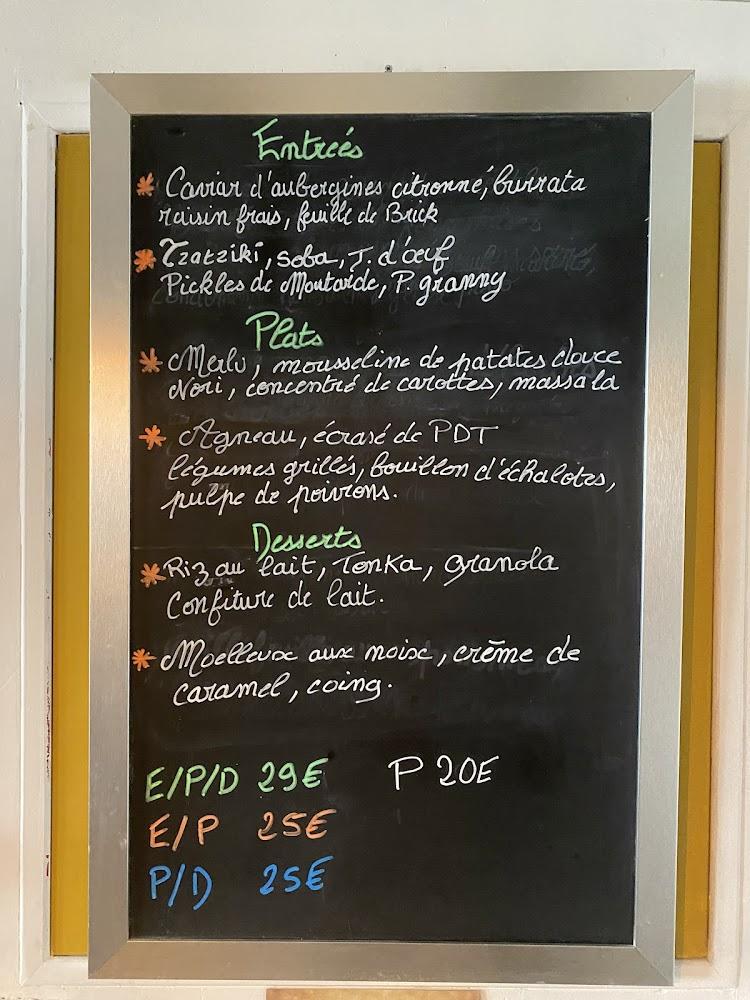 Entreés
* Caviar d'aubergines citronné, burrata
raisin frais, feuille de Brick
* Tzatziki, soba, J. d'œuf
Pickles de Moutarde, P. granny
Plats
* Merlu, mousseline de patates douce
Nori, concentré de carottes, massala
* Agneau, écrasé de PDT
légumes grillés, bouillon d'échalotes,
pulpe de poivrons.
Desserts
* Riz au lait, Tonka, granola
Confiture de lait.
* Moelleux aux noix, crème de
caramel, coing.
E/P/D 29€ P 20€
E/P 25€
P/D 25€